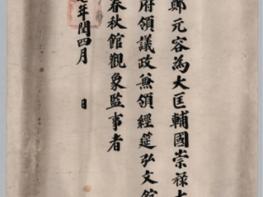 鄭元容為大匡輔國崇祿大
府領議政兼領經筵弘文館
春秋館觀象監事者
年閏四月　日